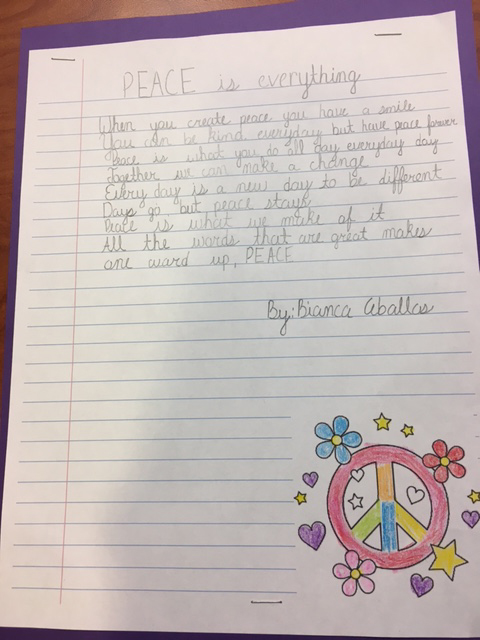 PEACE is everything
When you create peace you have a smile
You can be kind everyday but have peace forever
Peace is what you do all day everyday day
Together we can make a change
Every day is a new day to be different
Days go but peace stays
Peace is what we make of it
All the words that are great makes
one word up, PEACE
By: Bianca Caballas